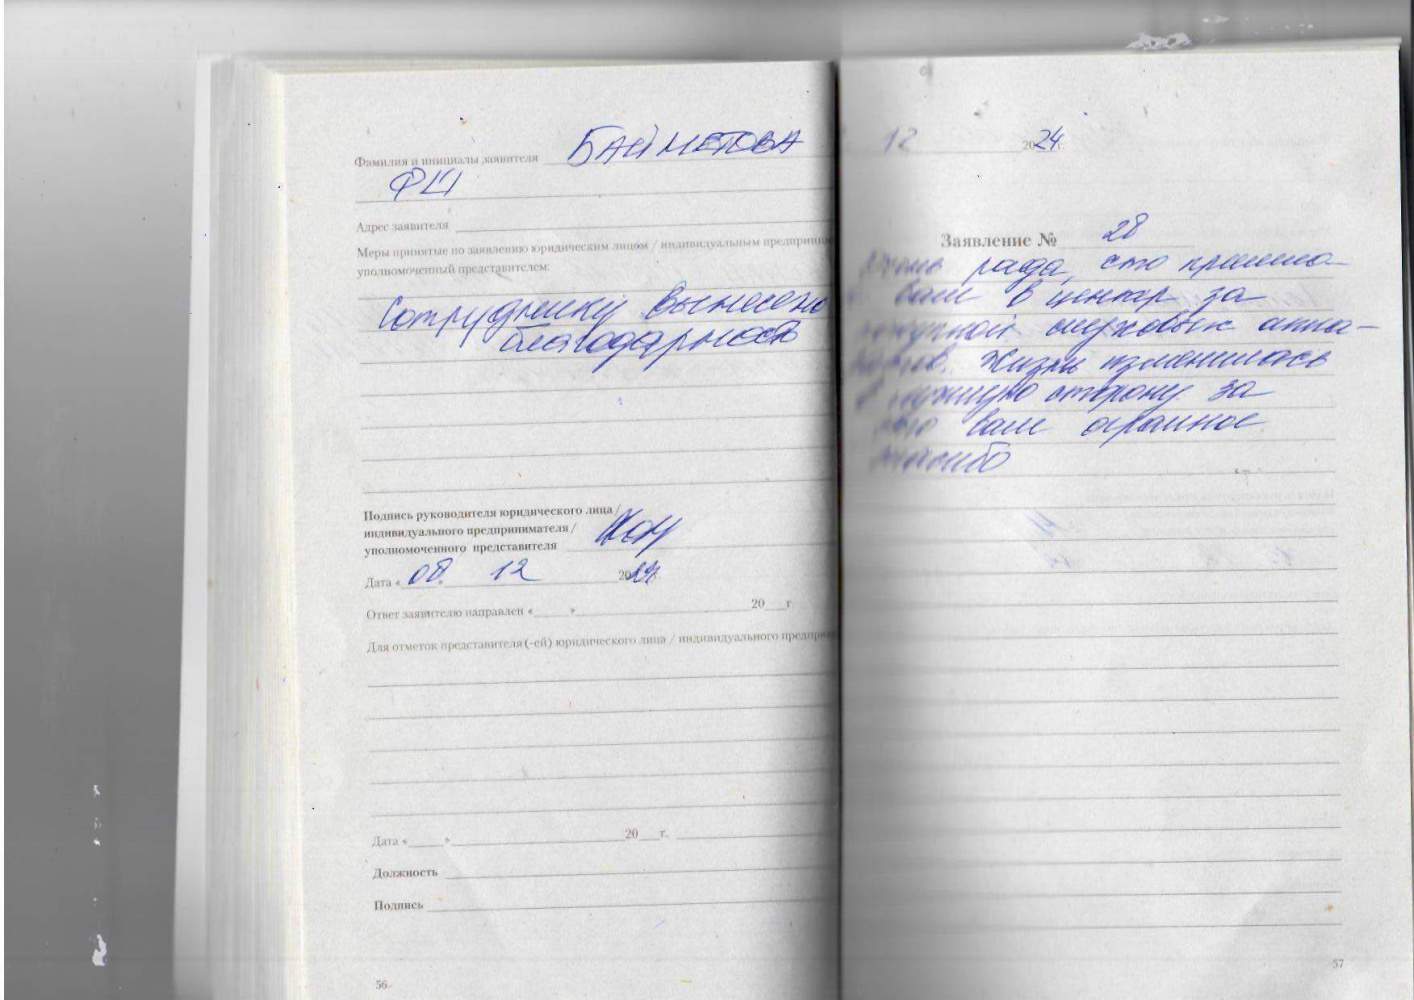 Фамилия и инициалы заявителя БАЙМЕТОВА
ФШ
Адрес заявителя
Меры принятые по заявлению юридическим лицом / индивидуальным
уполномоченный представителем:
Сотруднику вынесено
благодарность
Подпись руководителя юридического лица /
индивидуального предпринимателя /
уполномоченного представителя
Дата «08» 12 2024
Ответ заявителю направлен « » 20 г
Для отметок представителя (-ей) юридического лица / индивидуального
Дата « » 20 г.
Должность
Подпись
56
12 2024 г.
Заявление № 28
рада, что пришла
вам в центр за
слуховых аппа-
Жизнь изменилась
в лучшую сторону за
это вам огромное
спасибо
57